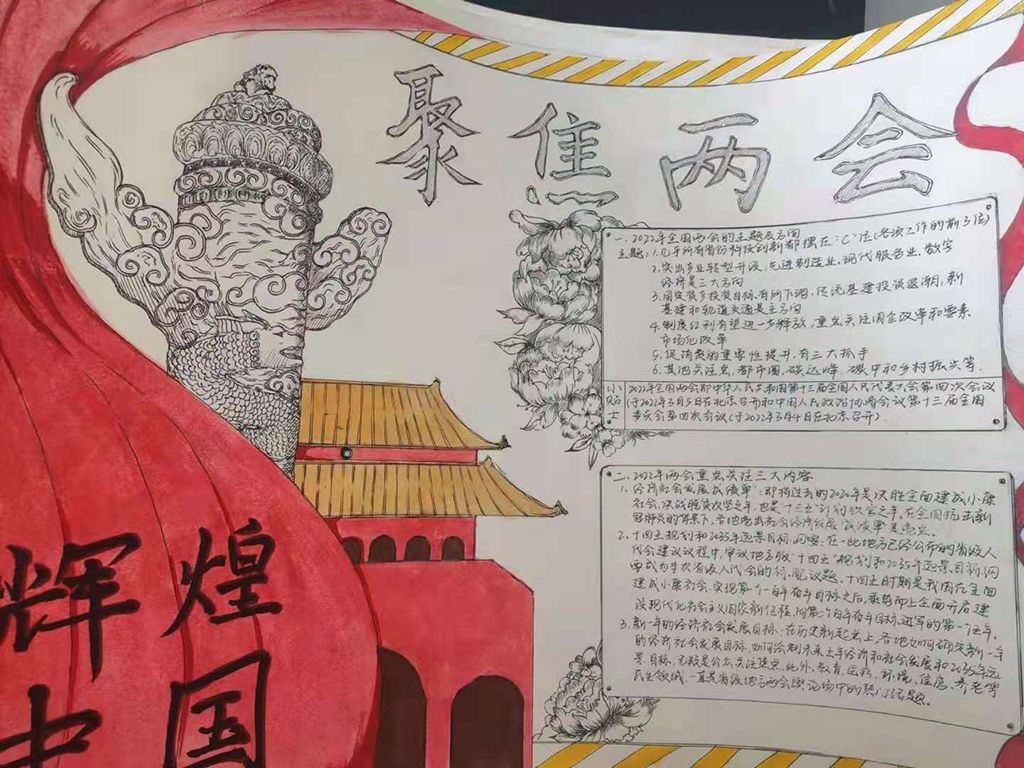 聚焦两会
一、2022年全国两会的主题及方向
主题:1.几乎所有省份科技创新都摆在“C”位(各项工作的前3位)
2.突出产业转型升级,先进制造业、现代服务业、数字
经济是三大方向
3.固定资产投资目标有所下调,传统基建投资退潮,新
基建和轨道交通是主方向
4.制度红利有望进一步释放,重点关注国企改革和要素
市场化改革
5.促消费的重要性提升,有三大抓手
6.其他关注点,都市圈、碳达峰、碳中和乡村振兴等.
小贴士
2022年全国两会即中华人民共和国第十三届全国人民代表大会第四次会议
(于2022年3月5日在北京召开和中国人民政治协商会议第十三届全国
委员会第四次会议(于2022年3月4日在北京召开).
二、2022年两会重点关注三大内容
1.经济社会发展成绩单:即将过去的2020年是决胜全面建成小康
社会,决战脱贫攻坚之年,也是“十三五”计划收官之年,在全国抗击新
冠肺炎的背景下,各地
2.十四五规划和2035年远景目标
代会建议议程中,审议地方版“十四五”规划和2035年远景目标纲
要成为本次省级人代会的
建成小康社会、实现第一个百年奋斗目标之后,乘势而上全面开启建
设现代化社会主义国家新征程,向第二个百年奋斗目标进军的第一个五年.
3.新一年的经济社会发展目标:在历史新起点上,各地如何确定新一年
的经济社会发展目标,如何绘制未来五年经济和社会发展和2035年远
景目标,无疑是公众关注焦点.此外,教育、医药、环境、住房、养老等
民生领域一直是省级地方两会舆论场中的热门话题.
辉煌
中国